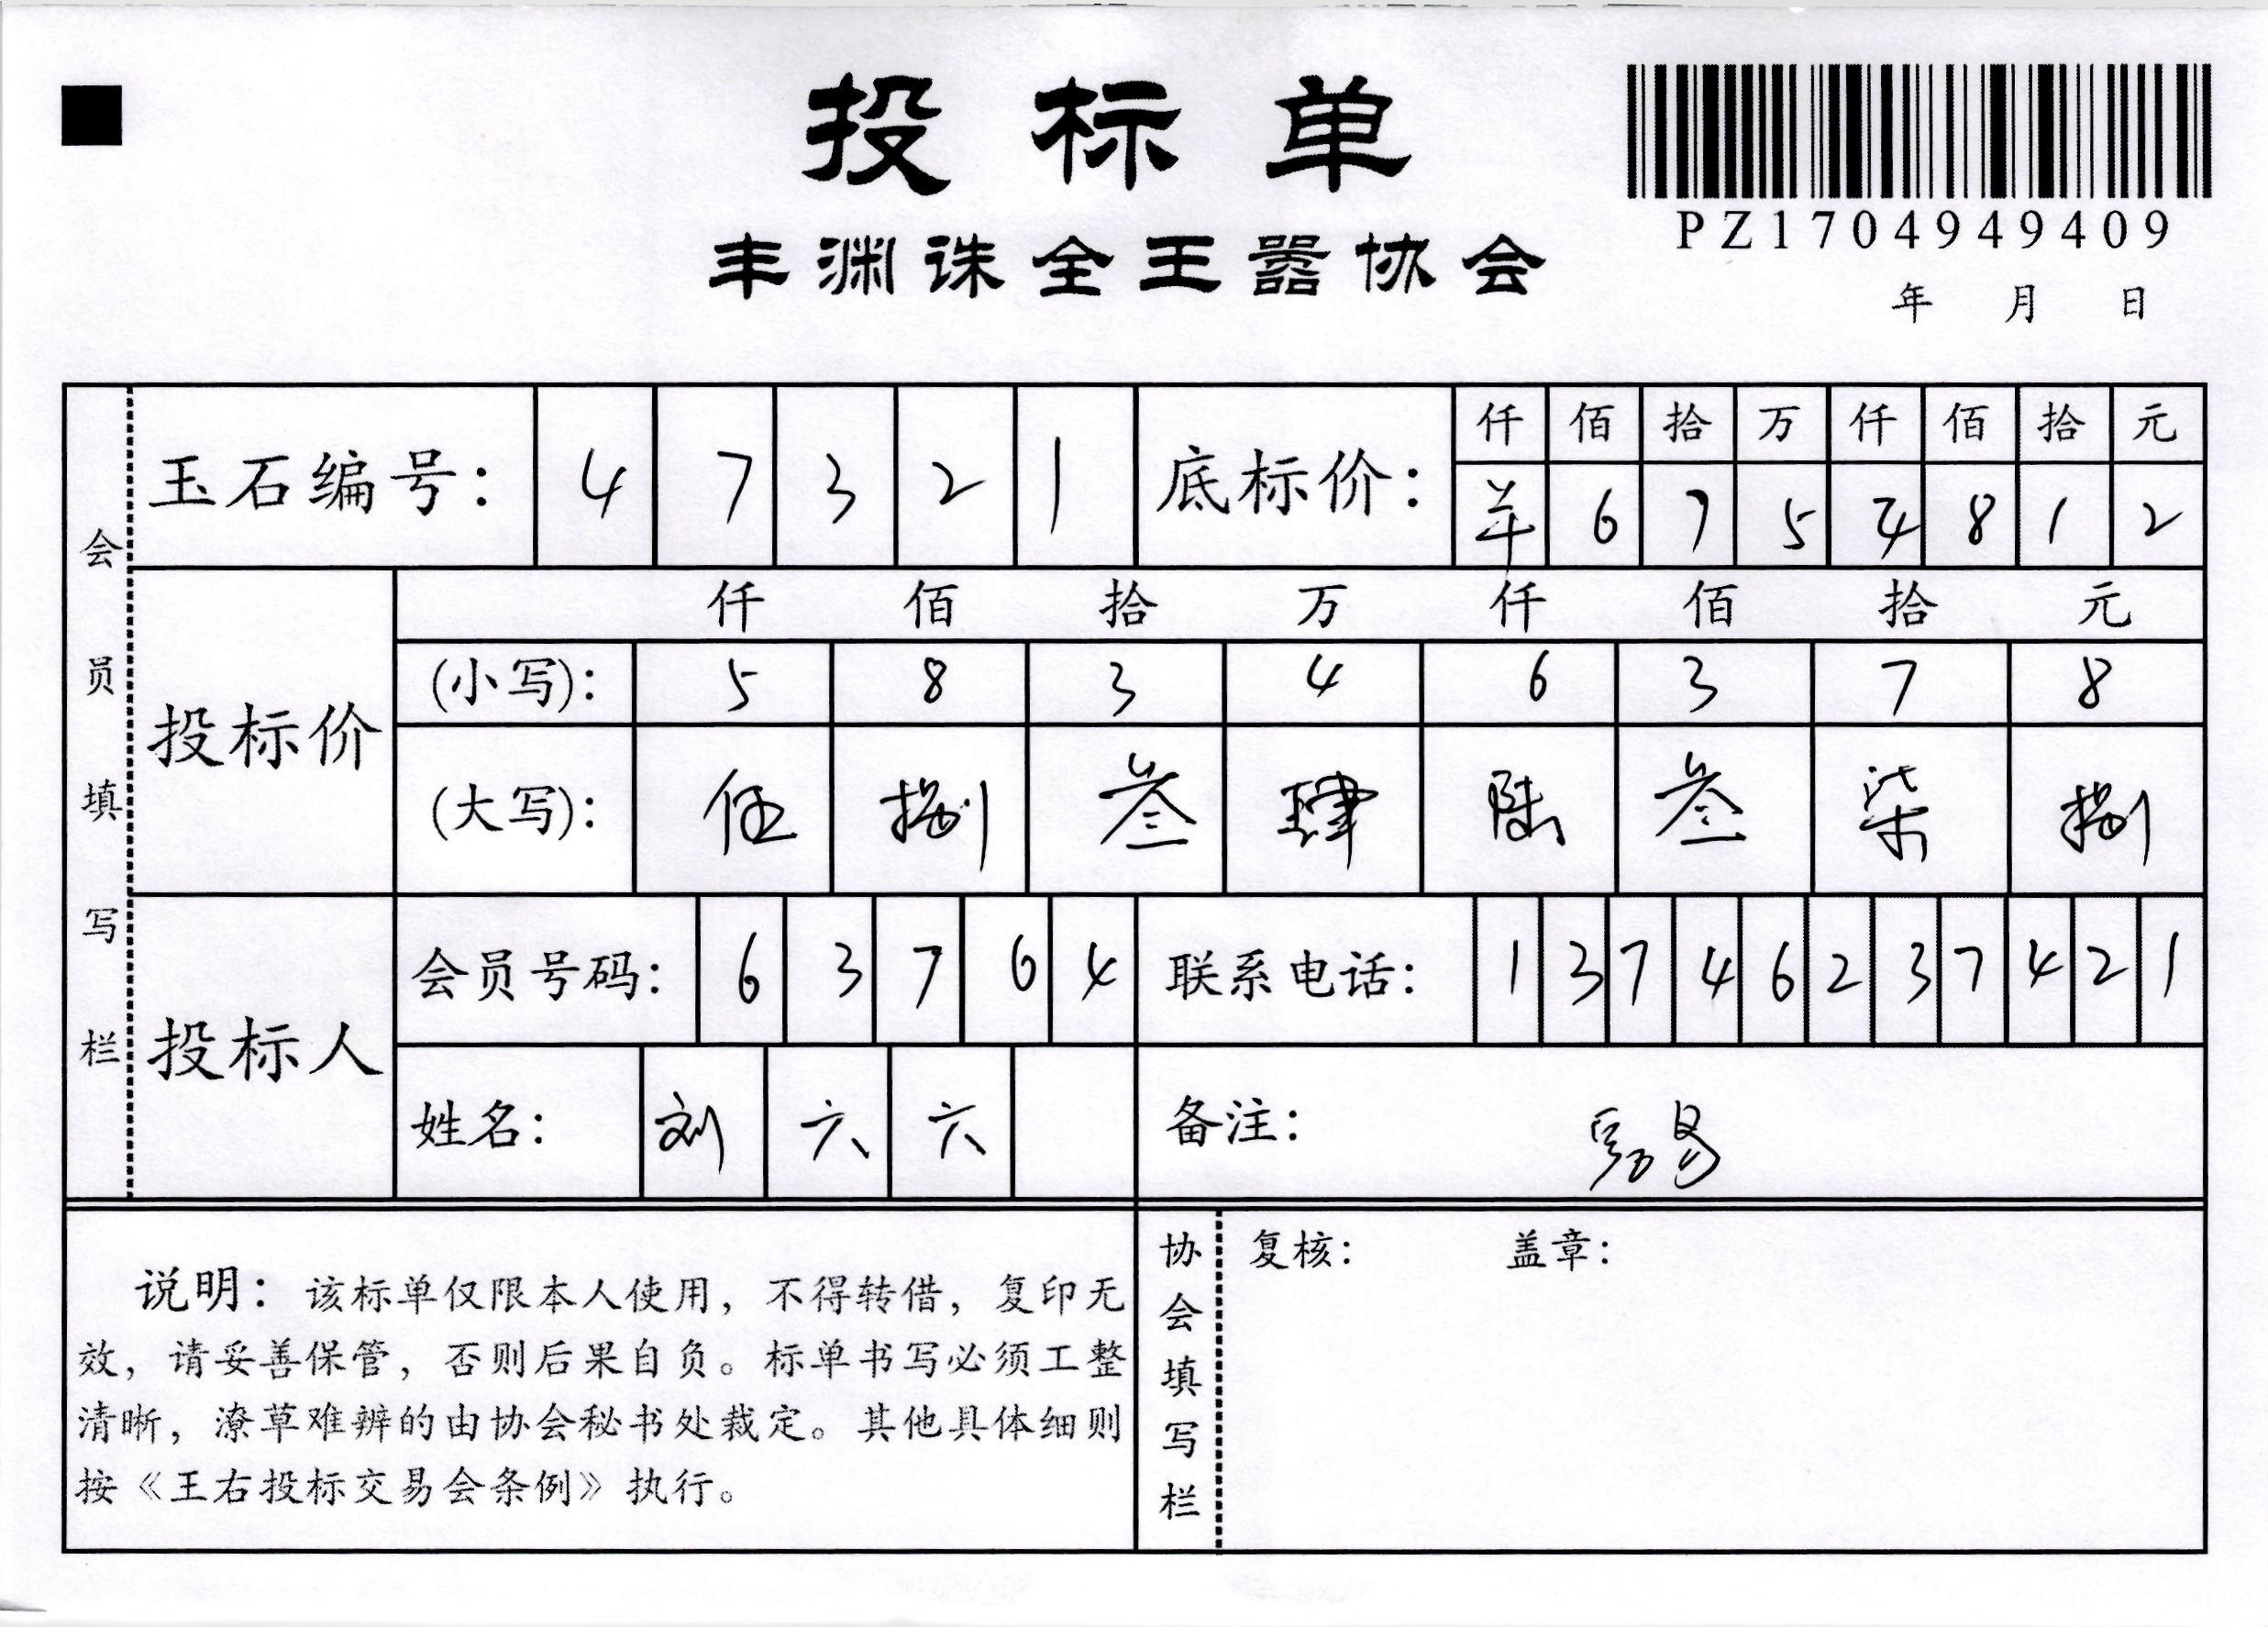 投标单
丰渊诛全王嚣协会
PZ1704949409
年 月 日
会员填写栏
玉石编号： 4 7 3 2 1
底标价：
仟 佰 拾 万 仟 佰 拾 元
羊 6 7 5 4 8 1 2
投标价
仟 佰 拾 万 仟 佰 拾 元
(小写)： 5 8 3 4 6 3 7 8
(大写)： 伍 捌 叁 肆 陆 叁 柒 捌
投标人
会员号码： 6 3 7 6 4
联系电话： 1 3 7 4 6 2 3 7 4 2 1
姓名： 刘 六 六
备注：
说明：该标单仅限本人使用，不得转借，复印无
效，请妥善保管，否则后果自负。标单书写必须工整
清晰，潦草难辨的由协会秘书处裁定。其他具体细则
按《王右投标交易会条例》执行。
协会填写栏
复核： 盖章：